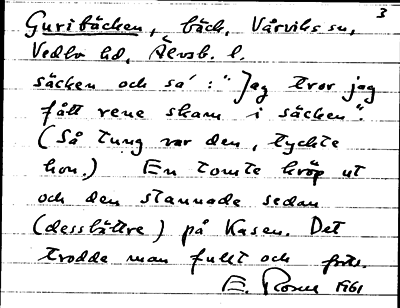 3
Guribäcken, bäck, Vårviks sn,
Vedbo hd, Älvsb. l.
säcken och sa: "Jag tror jag
fått rene skam i säcken".
(Så tung var den, tyckte
hon.) En tomte kröp ut
och den stannade sedan
(dessbättre) på Kasen. Det
trodde man fullt och
E. 1961